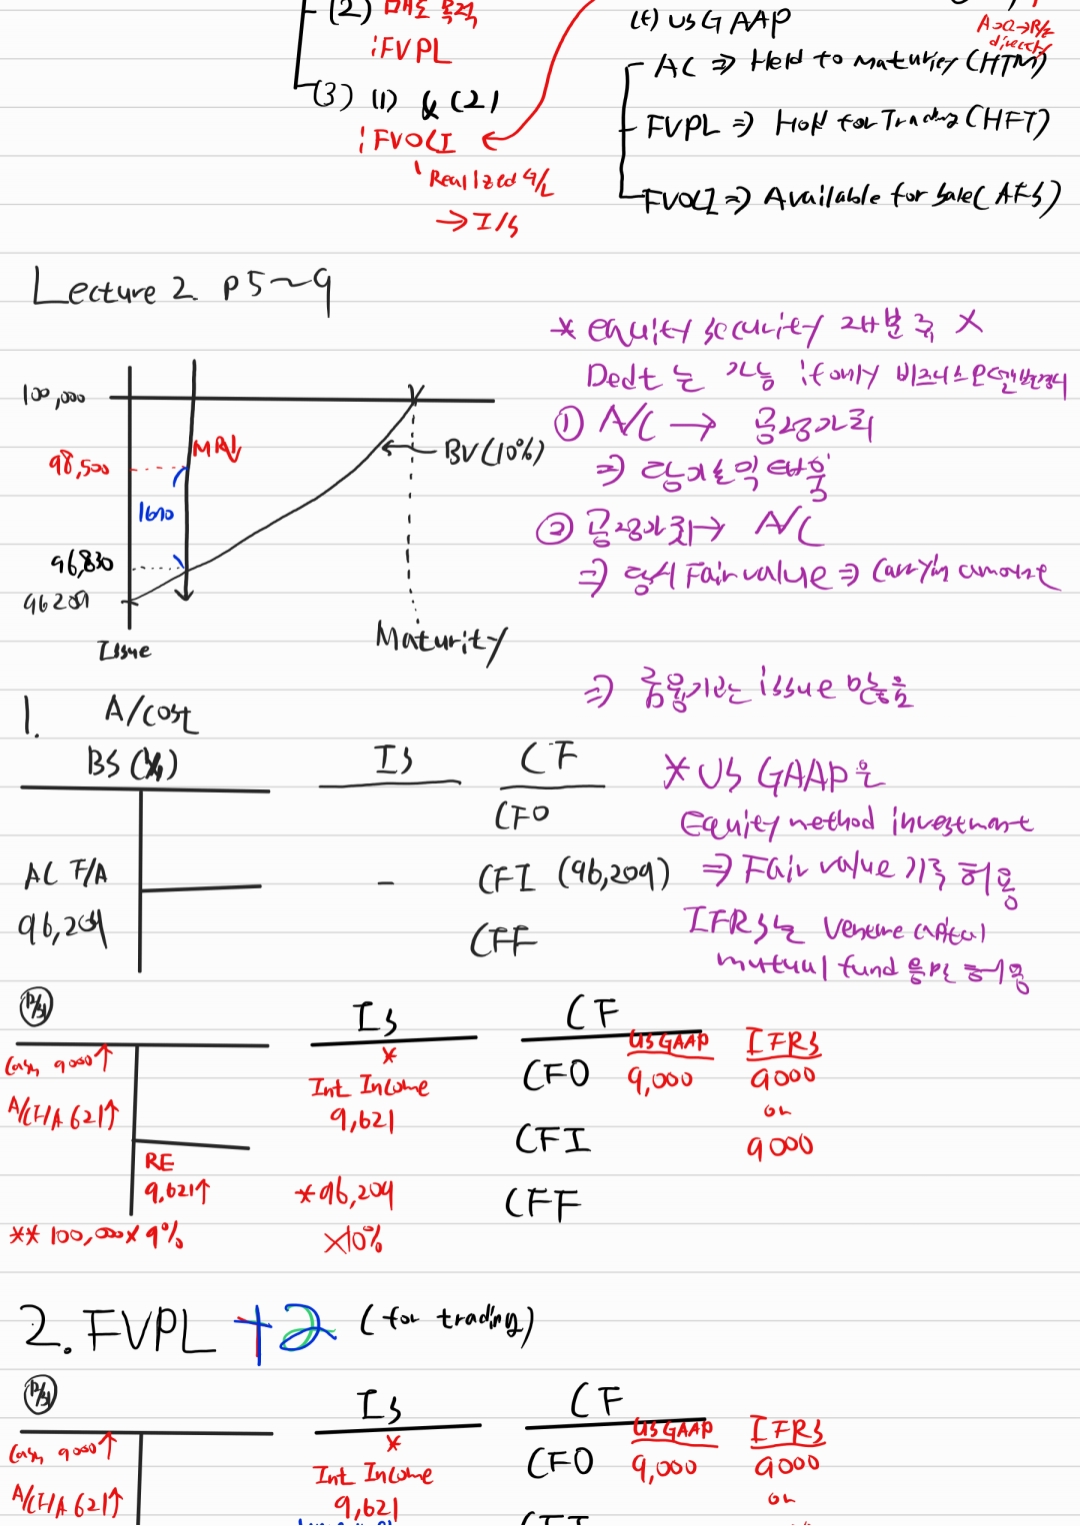 (2) 매도 목적
: FVPL
(3) (1) & (2)
: FVOCI
Realized G/L
→ I/S
(t) US GAAP
directly
AC ⇒ Held to Maturiey (HTM)
FVPL ⇒ Hold for Trading (HFT)
FVOCI ⇒ Available for Sale (AFS)
Lecture 2. p5~9
100,000
98,500
MR↓
1670
96,830
96209
BV (10%)
Issue
Maturity
* equity security 재분류 X
Dedt 는 가능 if only 비즈니스모델변경시
① A/C → 공정가치
⇒ 당기손익 반영
② 공정가치 → A/C
⇒ 당시 Fair value ⇒ Carryin amount
⇒ 금융기관은 issue 많음
1. A/cost
BS (1/1)
IS
CF
CFO
AC F/A
96,209
-
CFI (96,209)
CFF
* US GAAP은
Equity method investment
⇒ Fair value 기록 허용
IFRS는 Venture capital
mutual fund 등만 허용
12/31
IS
CF
Cash 9000↑
A/CF/A 621↑
RE
9,621↑
** 100,000 x 9%
*
Int Income
9,621
* 96,209
x10%
US GAAP
IFRS
CFO 9,000 9000
or
CFI 9000
CFF
2. FVPL +2 (for trading)
12/31
IS
CF
Cash 9000↑
A/CF/A 621↑
*
Int Income
9,621
US GAAP
IFRS
CFO 9,000 9000
or